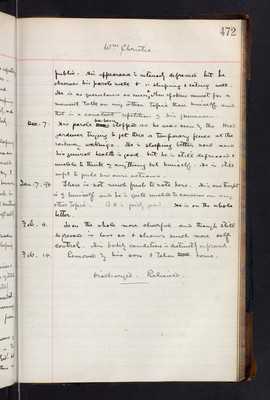 472
Wm Christie
public. His appearance is intensely depressed but he
observes his parole well & is sleeping & eating well.
He is as querulous as ever, & often cannot for a
moment talk on any other topic than himself and
that is a constant repetition of his grievances.
Dec. 7. His parole has been stopped as he was seen by the Head
gardener trying to get over a temporary fence at the
railway workings. He is sleeping better now and
his general health is good but he is still depressed &
unable to think of anything but himself. He is still
unfit to guide his own actions.
Jan. 7. 96 There is not much fresh to note here. His one thought
is of himself and he is quite unable to converse on any
other topic. He is on the whole
better.
Feb. 4. Is on the whole more cheerful and though still
depressed is less so & shows much more self
control. His bodily condition is distinctly improved.
Feb. 14. Removed by his son & taken home.
Discharged. Relieved.